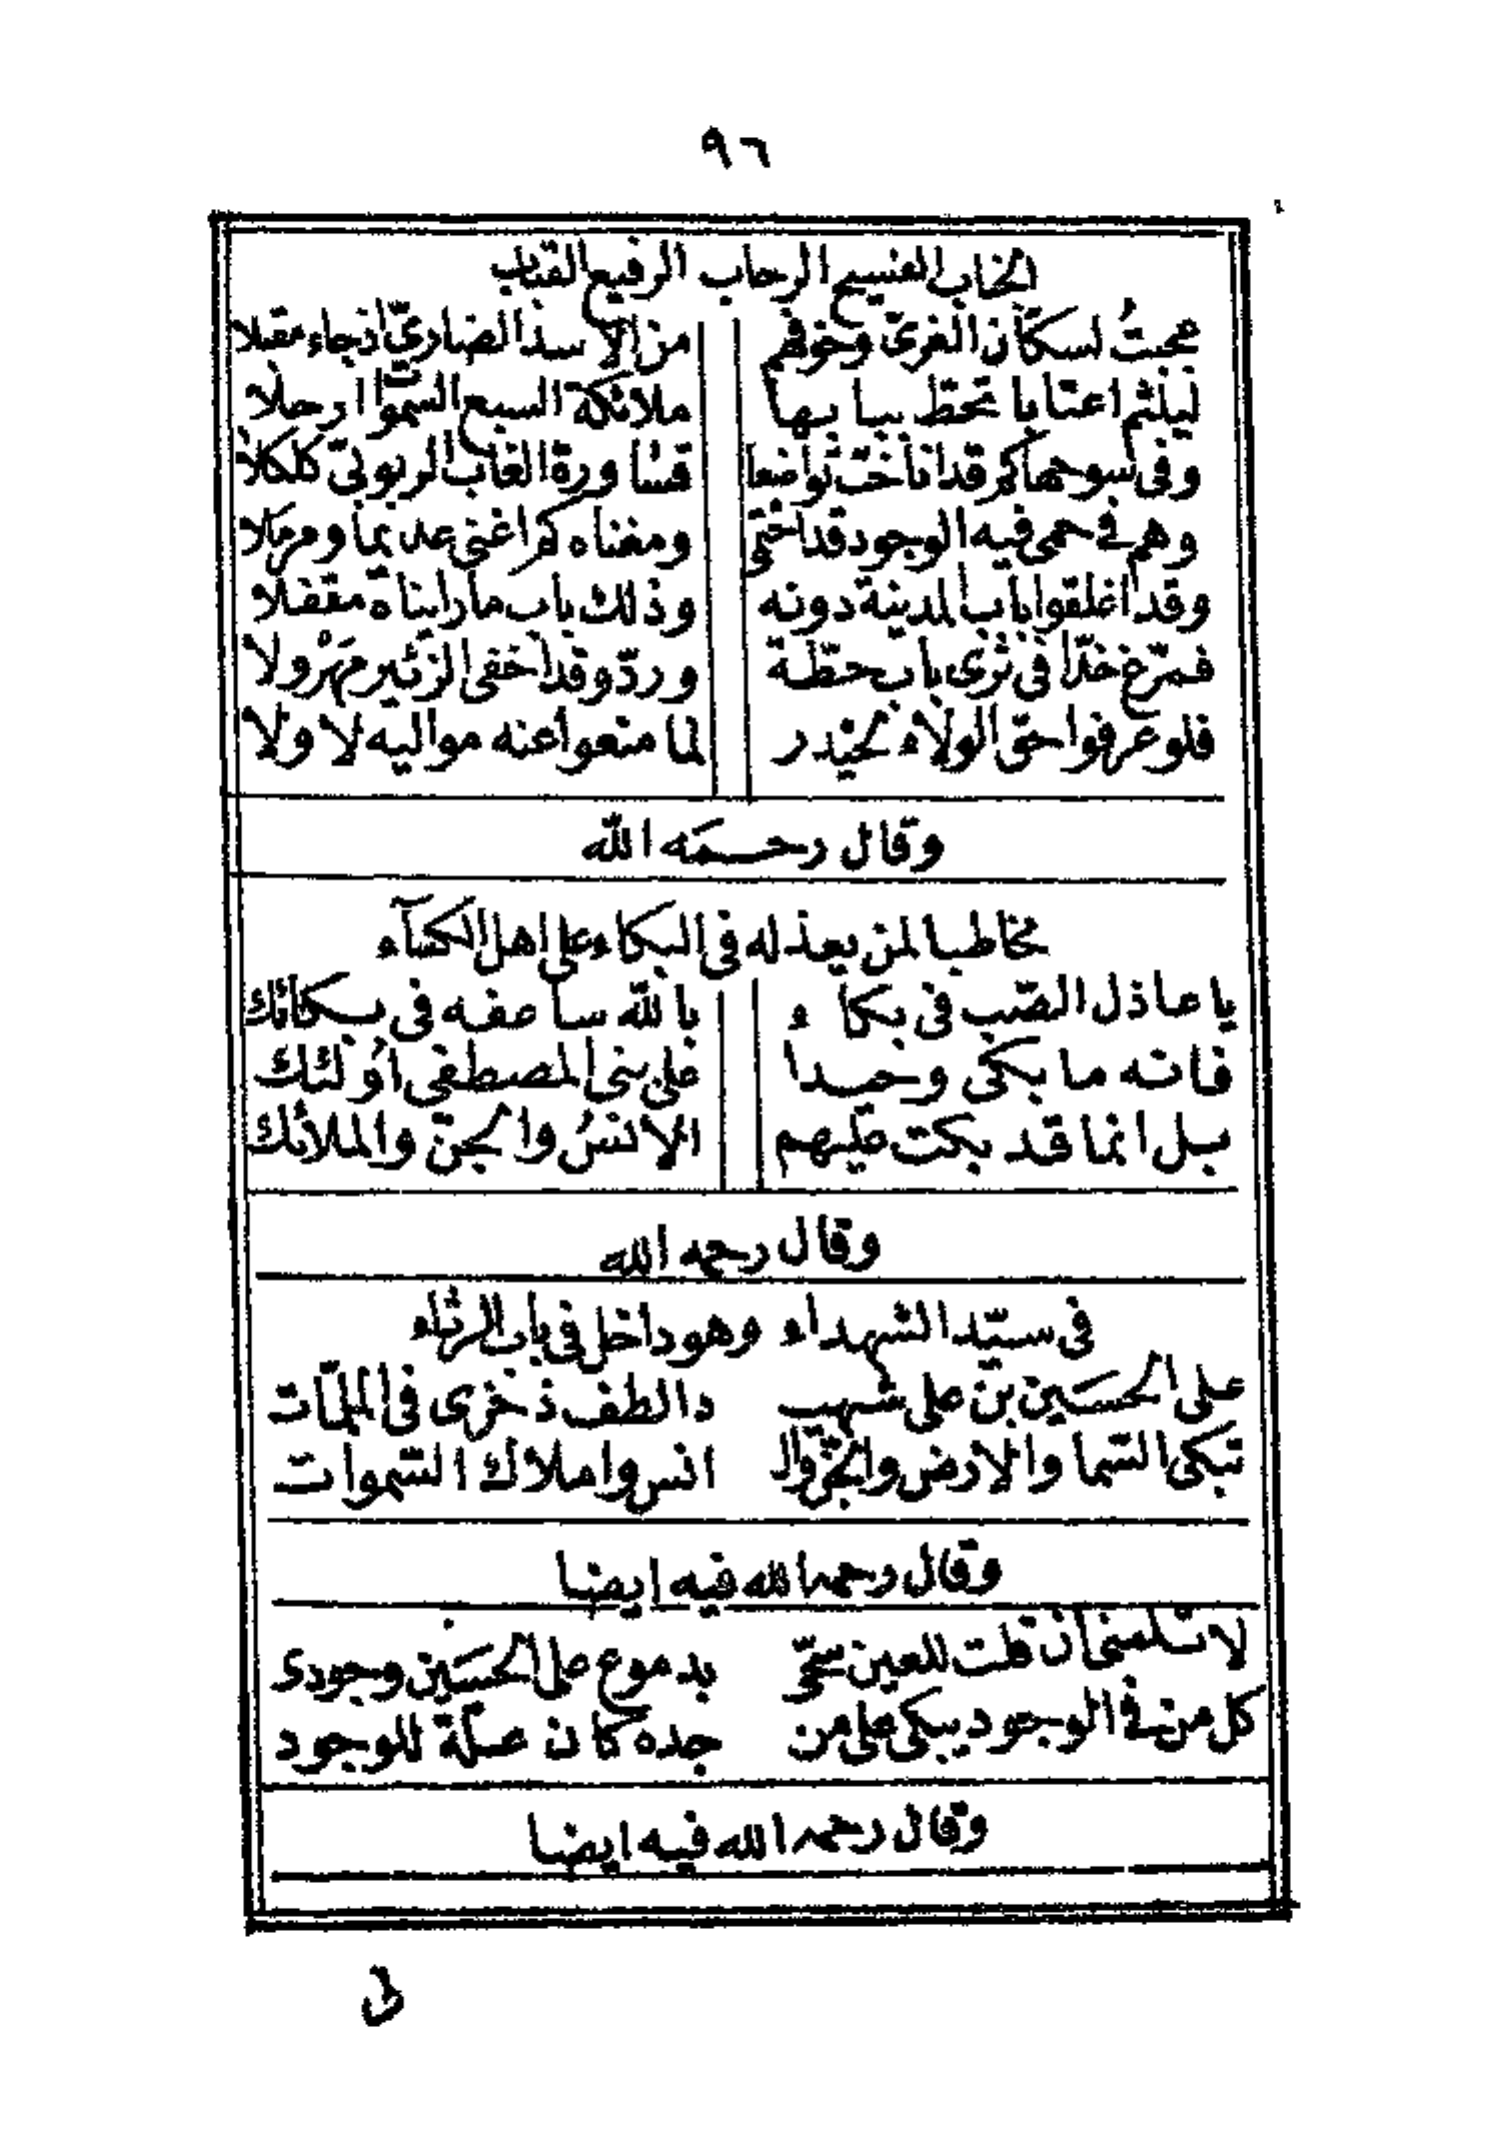 ٩٦
الجناب الفسيح الرحاب الرفيع القباب
عجبتُ لسكّان الغرىّ وخوفهم من الاسد الضارىّ اذ جاء مقبلا
ليلثم اعتابا تحطّ ببابها ملائكة السبع السموات ارحلا
وفى سوحها كم قد اناخت تواضعا قساورة الغاب الربوبىّ كلكلا
وهم فى حمى فيه الوجود قد احتمى ومغناه كم اغنى عديما ومرملا
وقد اغلقوا باب المدينة دونه وذلك باب ما راينا ه مقفلا
فمرّغ خدّا فى ثرى باب حطّة وردّ وقد اخفى الزئير مهرولا
فلو عرفوا حق الولاء لحيْدر لما منعوا عنه مواليه لا ولا
وقال رحمه الله
مخاطبا لمن يعذله فى البكاء على اهل الكسآء
يا عاذل الصّب فى بكاء بالله ساعفه فى بكائك
فانه ما بكى وحيدا على بنى المصطفى اولئك
بل انما قد بكت عليهم الانسُ والجنّ والملائك
وقال رحمه الله
فى سيّد الشهداء وهو داخل فى باب الرثاء
على الحسين بن على شهيـ دا لطف ذخرى فى الملمّات
تبكى السّما والارض والجنّ والـ انس واملاك السّموات
وقال رحمه الله فيه ايضا
لا تلمنى ان قلت للعين سحّى بدموع على الحسين وجودى
كل من فى الوجود يبكى على من جده كان علّة للوجود
وقال رحمه الله فيه ايضا